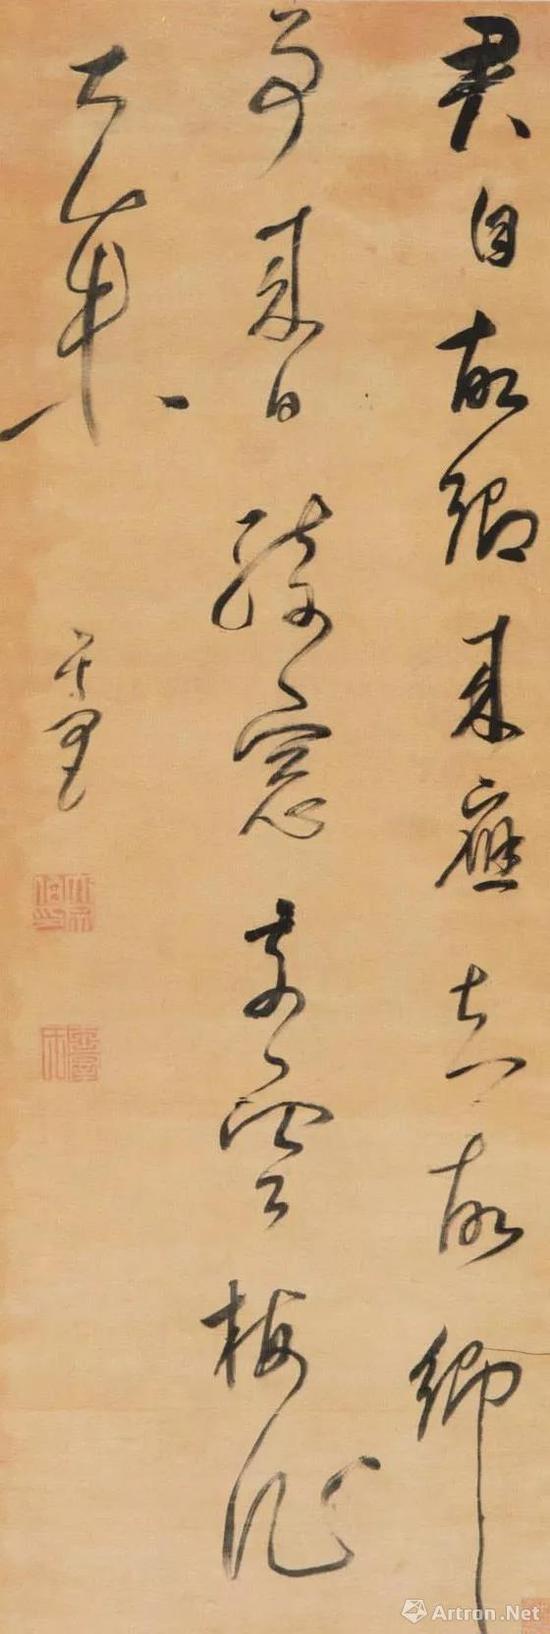 君自故鄉來應知故鄉
事來日綺窓前寒梅花
著未
Artron.Net